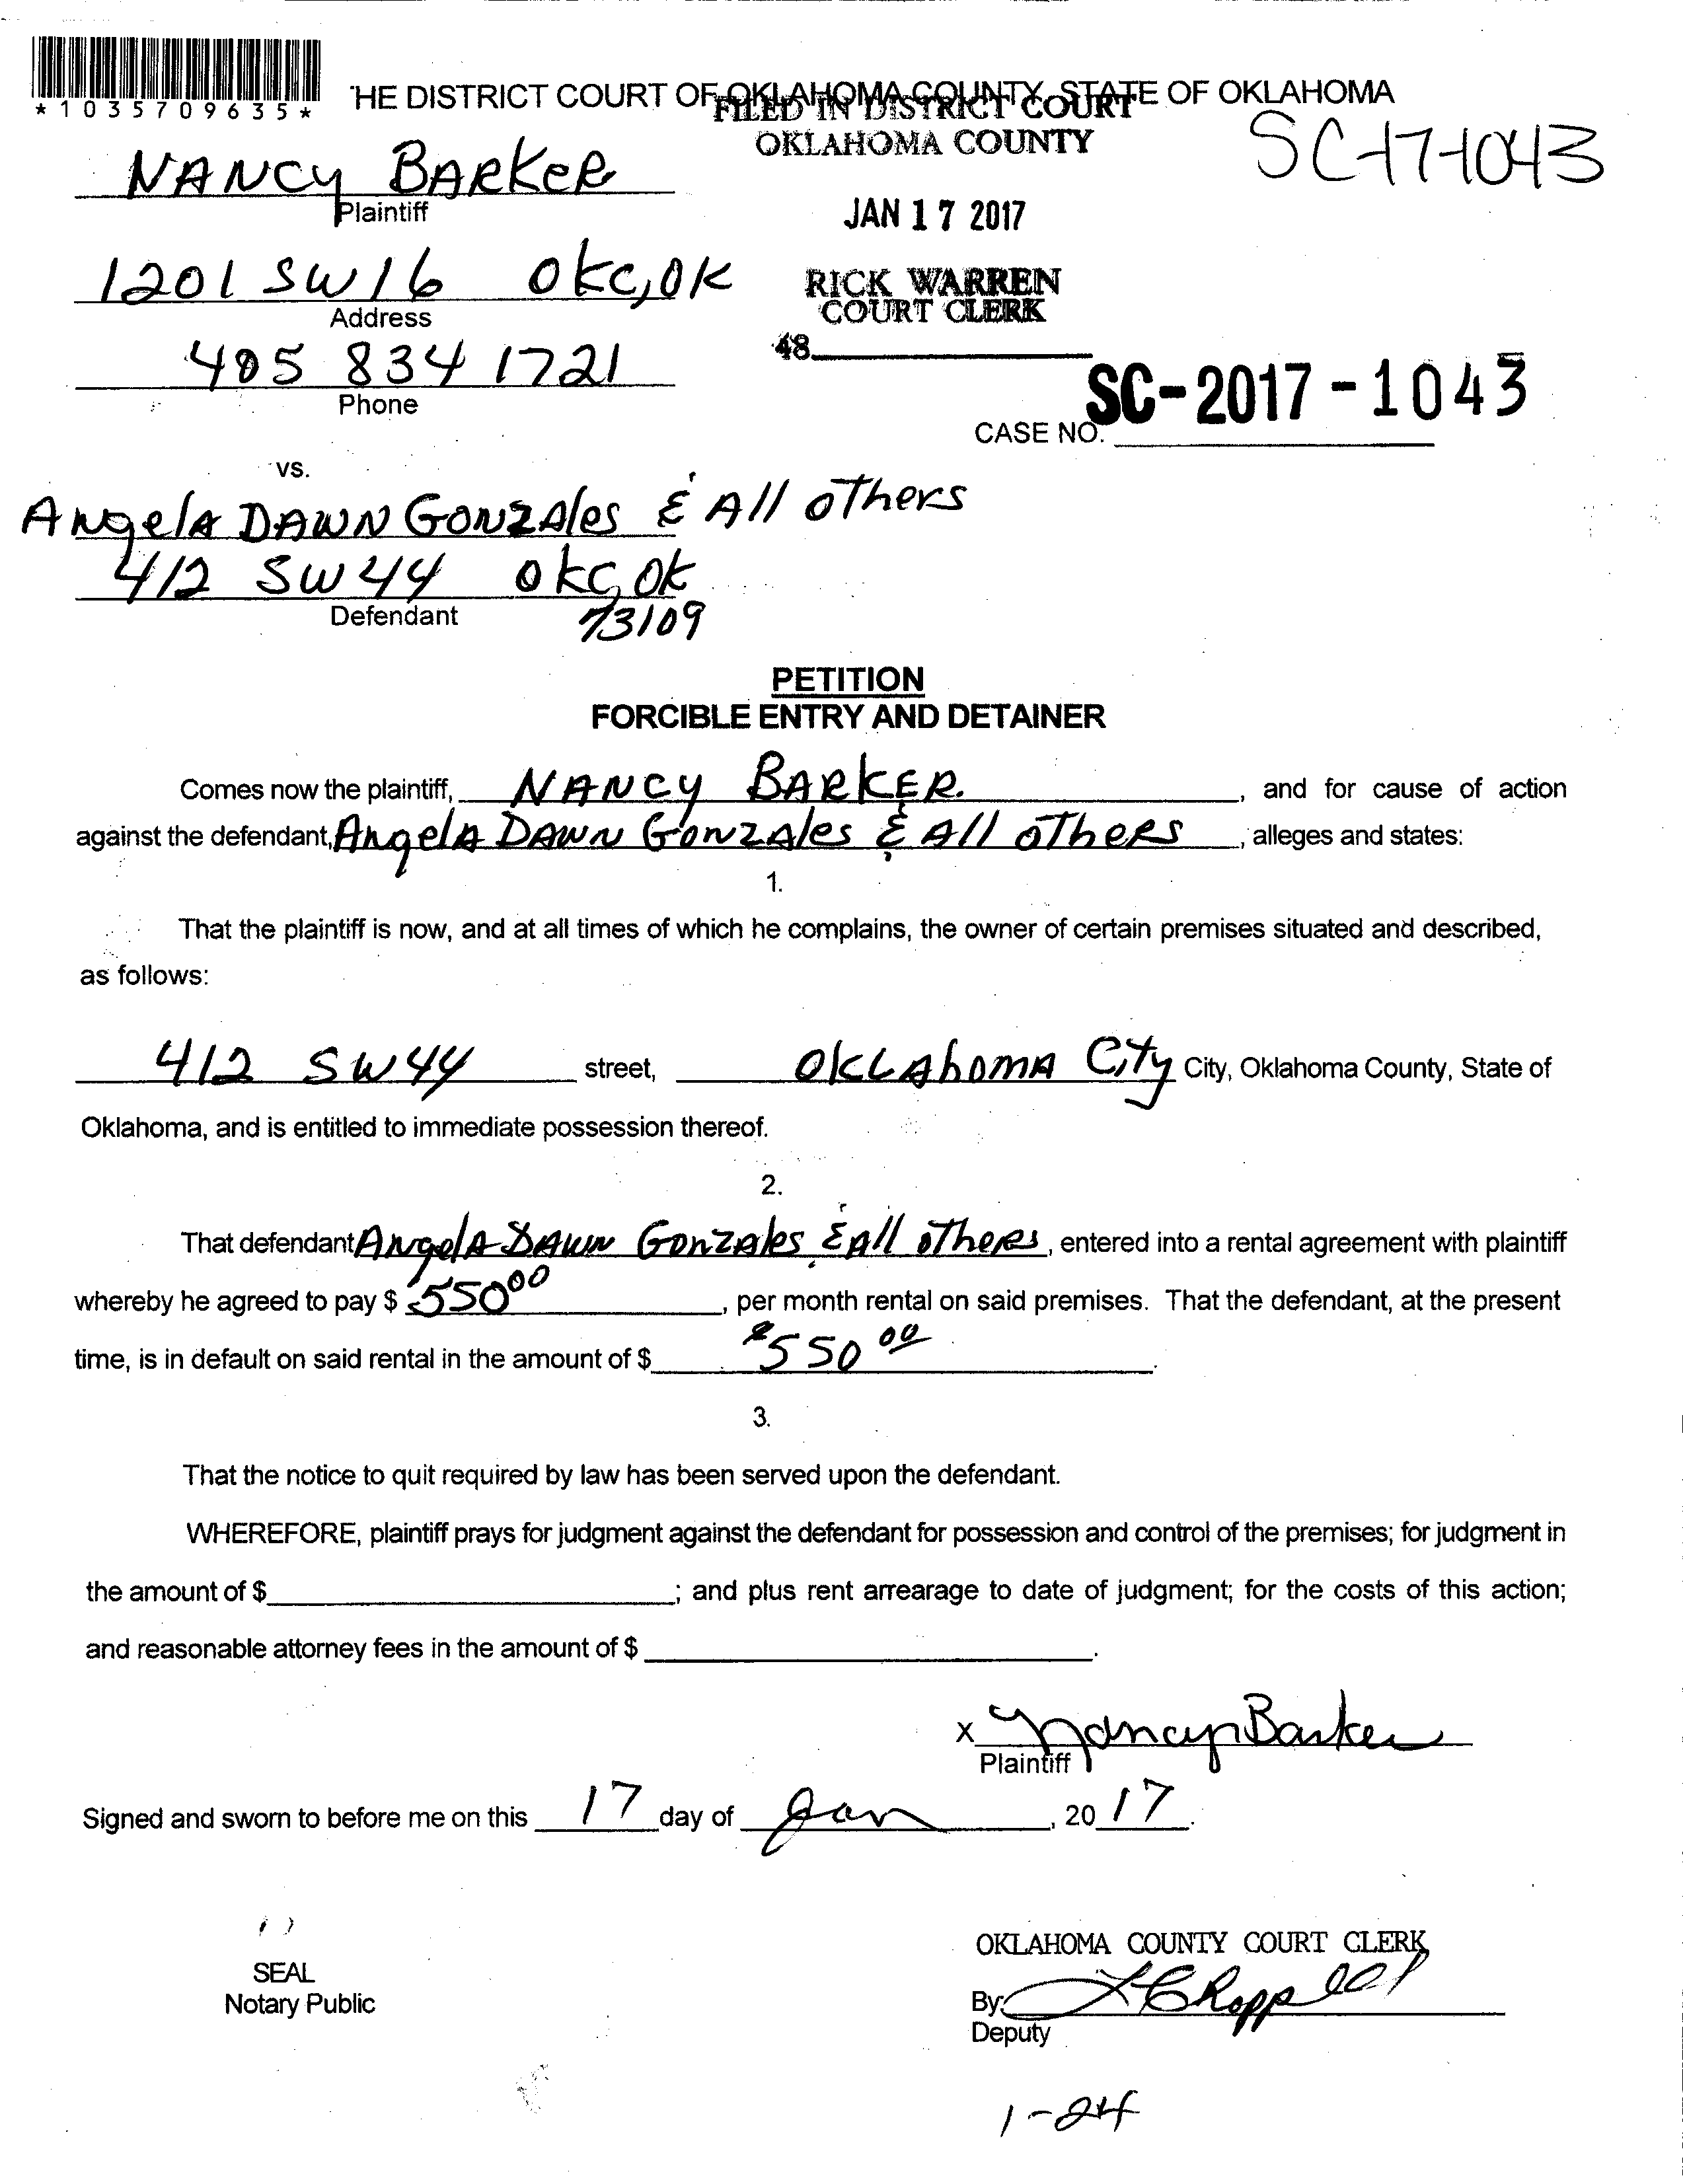 *1035709635*
'HE DISTRICT COURT OF OKLAHOMA COUNTY, STATE OF OKLAHOMA
FILED IN DISTRICT COURT
OKLAHOMA COUNTY
SC-17-1043
NANCY BARKeR
Plaintiff
JAN 17 2017
1201 SW 16 OKC, OK
Address
RICK WARREN
COURT CLERK
405 834 1721
Phone
48
CASE NO. SC-2017-1043
vs.
AngelA DAWN GONZAles & All oThers
412 SW 44 OKC, OK
Defendant 73109
PETITION
FORCIBLE ENTRY AND DETAINER
Comes now the plaintiff, NANCY BARKER. , and for cause of action
against the defendant, AngelA DAWN GonzAles & All oTheRs , alleges and states:
1.
That the plaintiff is now, and at all times of which he complains, the owner of certain premises situated and described,
as follows:
412 SW 44 street, OKLAhomA CiTy City, Oklahoma County, State of
Oklahoma, and is entitled to immediate possession thereof.
2.
That defendant AngelA DAWN GonzAles & All oTheRs , entered into a rental agreement with plaintiff
whereby he agreed to pay $ 550 00 , per month rental on said premises. That the defendant, at the present
time, is in default on said rental in the amount of $ $550 00 .
3.
That the notice to quit required by law has been served upon the defendant.
WHEREFORE, plaintiff prays for judgment against the defendant for possession and control of the premises; for judgment in
the amount of $ ; and plus rent arrearage to date of judgment; for the costs of this action;
and reasonable attorney fees in the amount of $ .
X Nancy Barker
Plaintiff
Signed and sworn to before me on this 17 day of Jan , 20 17 .
SEAL
Notary Public
OKLAHOMA COUNTY COURT CLERK
By:
Deputy
1-24